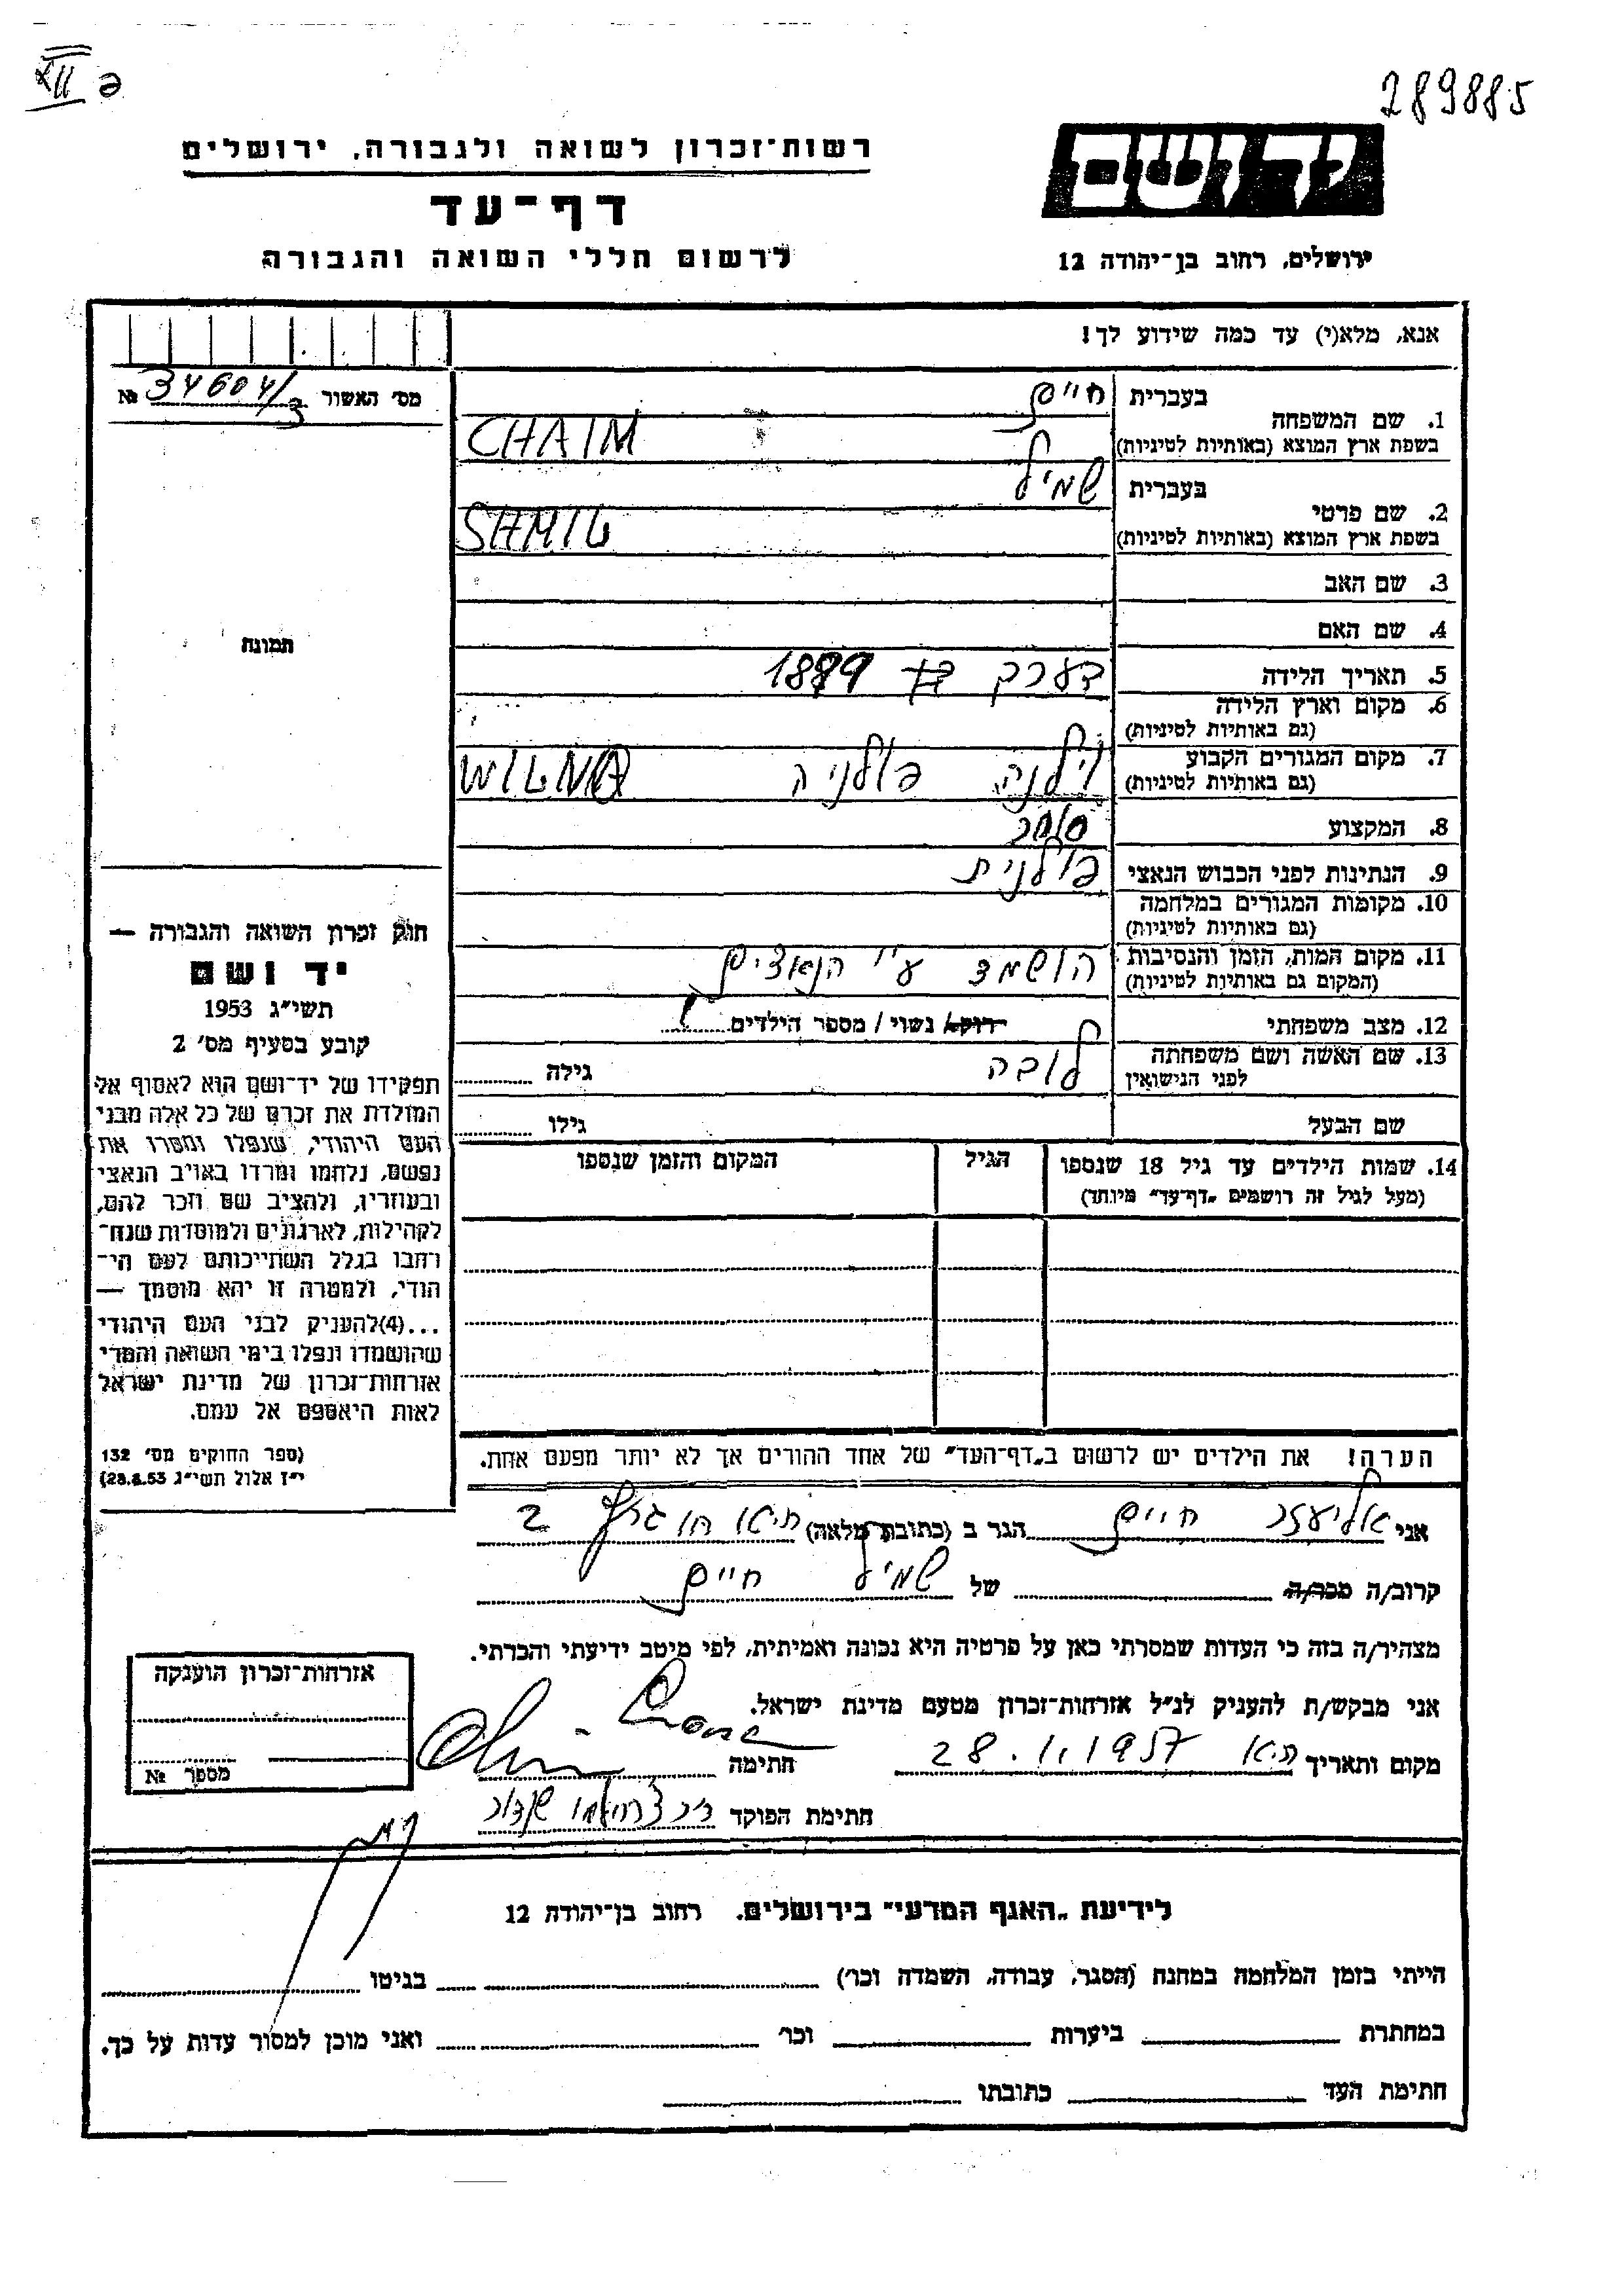 289885
XII
יד ושם
ירושלים, רחוב בן־יהודה 12
רשות־זכרון לשואה ולגבורה, ירושלים
דף־עד
לרשום חללי השואה והגבורה
אנא, מלא(י) עד כמה שידוע לך!
מס׳ האשור 34604/3 №
תמונה
1. שם המשפחה
בעברית חיים
בשפת ארץ המוצא (באותיות לטיניות) CHAIM
2. שם פרטי
בעברית שמיל
בשפת ארץ המוצא (באותיות לטיניות) SHMIL
3. שם האב
4. שם האם
5. תאריך הלידה בערך 1889
6. מקום וארץ הלידה
(גם באותיות לטיניות)
7. מקום המגורים הקבוע וילנה פולניה WILNA
(גם באותיות לטיניות)
8. המקצוע סוחר
9. הנתינות לפני הכבוש הנאצי פולנית
10. מקומות המגורים במלחמה
(גם באותיות לטיניות)
11. מקום המות, הזמן והנסיבות הושמד ע"י הנאצים
(המקום גם באותיות לטיניות)
12. מצב משפחתי רווק/ נשוי/ מספר הילדים
13. שם האשה ושם משפחתה לובה גילה
לפני הנישואין
שם הבעל גילו
14. שמות הילדים עד גיל 18 שנספו הגיל המקום והזמן שנספו
(מעל לגיל זה רושמים „דף־עד" מיוחד)
חוק זכרון השואה והגבורה —
יד ושם
תשי״ג 1953
קובע בסעיף מס׳ 2
תפקידו של יד־ושם הוא לאסוף אל
המולדת את זכרם של כל אלה מבני
העם היהודי, שנפלו ומסרו את
נפשם, נלחמו ומרדו באויב הנאצי
ובעוזריו, ולהציב שם וזכר להם,
לקהילות, לארגונים ולמוסדות שנח־
רבו בגלל השתייכותם לעם הי־
הודי, ולמטרה זו יהא מוסמך —
...(4)להעניק לבני העם היהודי
שהושמדו ונפלו בימי השואה והמרי
אזרחות־זכרון של מדינת ישראל
לאות היאספם אל עמם.
(ספר החוקים מס׳ 132
י״ז אלול תשי״ג 28.8.53)
הערה! את הילדים יש לרשום ב„דף־העד" של אחד ההורים אך לא יותר מפעם אחת.
אני אליעזר חיים הגר ב (כתובת מלאה) ת״א 2
קרוב/ה מכר/ה של שמיל חיים
מצהיר/ה בזה כי העדות שמסרתי כאן על פרטיה היא נכונה ואמיתית, לפי מיטב ידיעתי והכרתי.
אני מבקש/ת להעניק לנ״ל אזרחות־זכרון מטעם מדינת ישראל.
מקום ותאריך ת״א 28.1.1957 חתימה
חתימת הפוקד
אזרחות־זכרון הוענקה
מספר №
לידיעת „האגף המדעי" בירושלים. רחוב בן־יהודה 12
הייתי בזמן המלחמה במחנה (הסגר, עבודה, השמדה וכו׳) בגיטו
במחתרת ביערות וכו׳ ואני מוכן למסור עדות על כך.
חתימת העד כתובתו